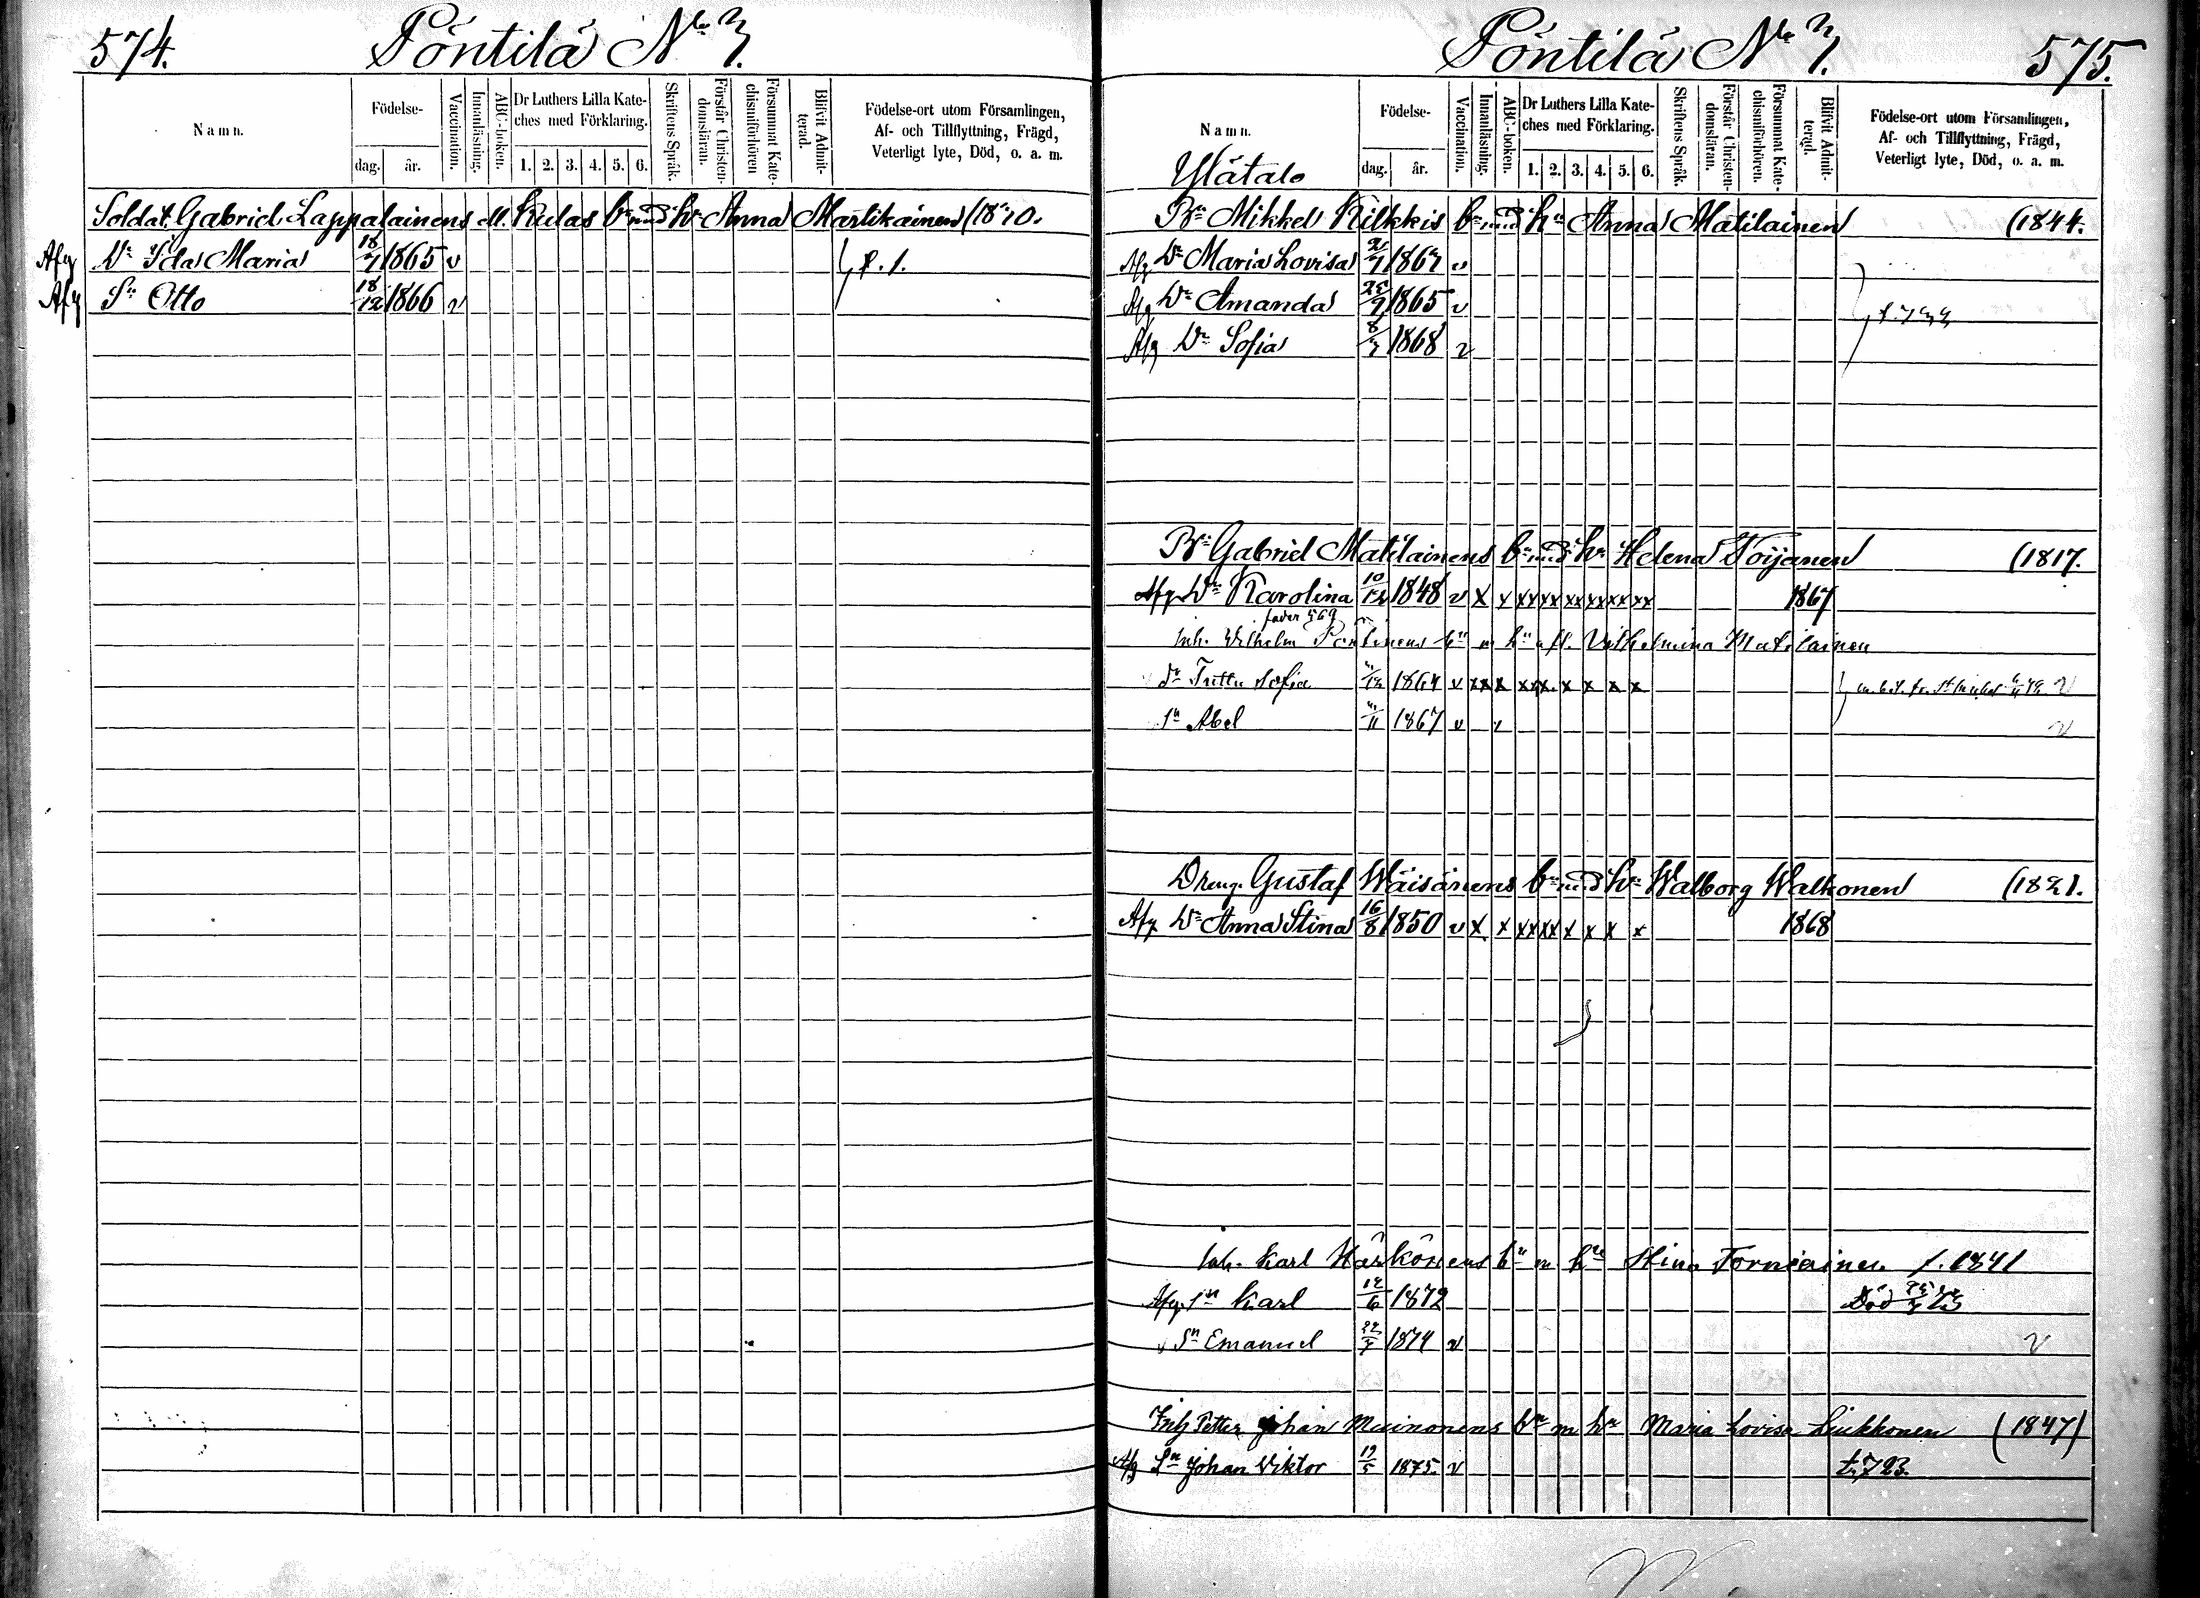 574. Pöntilä No 7.
Namn.
Födelse-
dag.
år.
Vaccination.
Innanläsning.
ABC-boken.
Dr Luthers Lilla Kate-
ches med Förklaring.
1. 2. 3. 4. 5. 6.
Skriftens Språk.
Förstår Christen-
domsläran.
Försummat Kate-
chismiförhören
Blifvit Admit-
terad.
Födelse-ort utom Församlingen,
Af- och Tillflyttning, Frägd,
Veterligt lyte, Död, o. a. m.
Soldat. Gabriel Lappalainens ell. Kulas bn med hu Anna Martikainen (18 10.
Afg Dr Ida Maria 18/7 1865 v f. 1.
Afg Sn Otto 18/12 1866 v
Pöntilä No 7. 575.
Namn.
Ylätalo
Födelse-
dag.
år.
Vaccination.
Innanläsning.
ABC-boken.
Dr Luthers Lilla Kate-
ches med Förklaring.
1. 2. 3. 4. 5. 6.
Skriftens Språk.
Förstår Christen-
domsläran.
Försummat Kate-
chismiförhören.
Blifvit Admit-
terad.
Födelse-ort utom Församlingen,
Af- och Tillflyttning, Frägd,
Veterligt lyte, Död, o. a. m.
Bn Mikkel Kilkkis bn med hu Anna Matilainen (1844.
Afg Dr Maria Lovisa 2/7 1867 v
Afg Dr Amanda 25/9 1865 v
Afg Dr Sofia 8/7 1868 v
Bn Gabriel Matilainens bn med hu Helena Toijanen (1817.
Afg Dr Karolina 10/12 1848 v x x xx xx xx xx xx xx 1867
fader 569
Inh. Wilhelm bn m hu Vilhelmina Matilainen
dr Sofia 1864 v xx x xx x. x x x x v
sn Abel 1867 v v v
Dreng. Gustaf Wäisänens bn med hu Walborg Walkonen (1821.
Afg Dr Anna Stina 16/8 1850 v x x xx xx x x x x 1868
Inh. Karl Härkönens bn m hu Stina Torniainen f. 1841
Afg. sn Karl 12/6 1872 Död
v Sn Emanuel 22/7 1874 v v
Inh Petter Johan Muinonens bn m hu Maria Lovisa Liukkonen (1847)
Afg Sn Johan Viktor 19/5 1875. v t. 723.